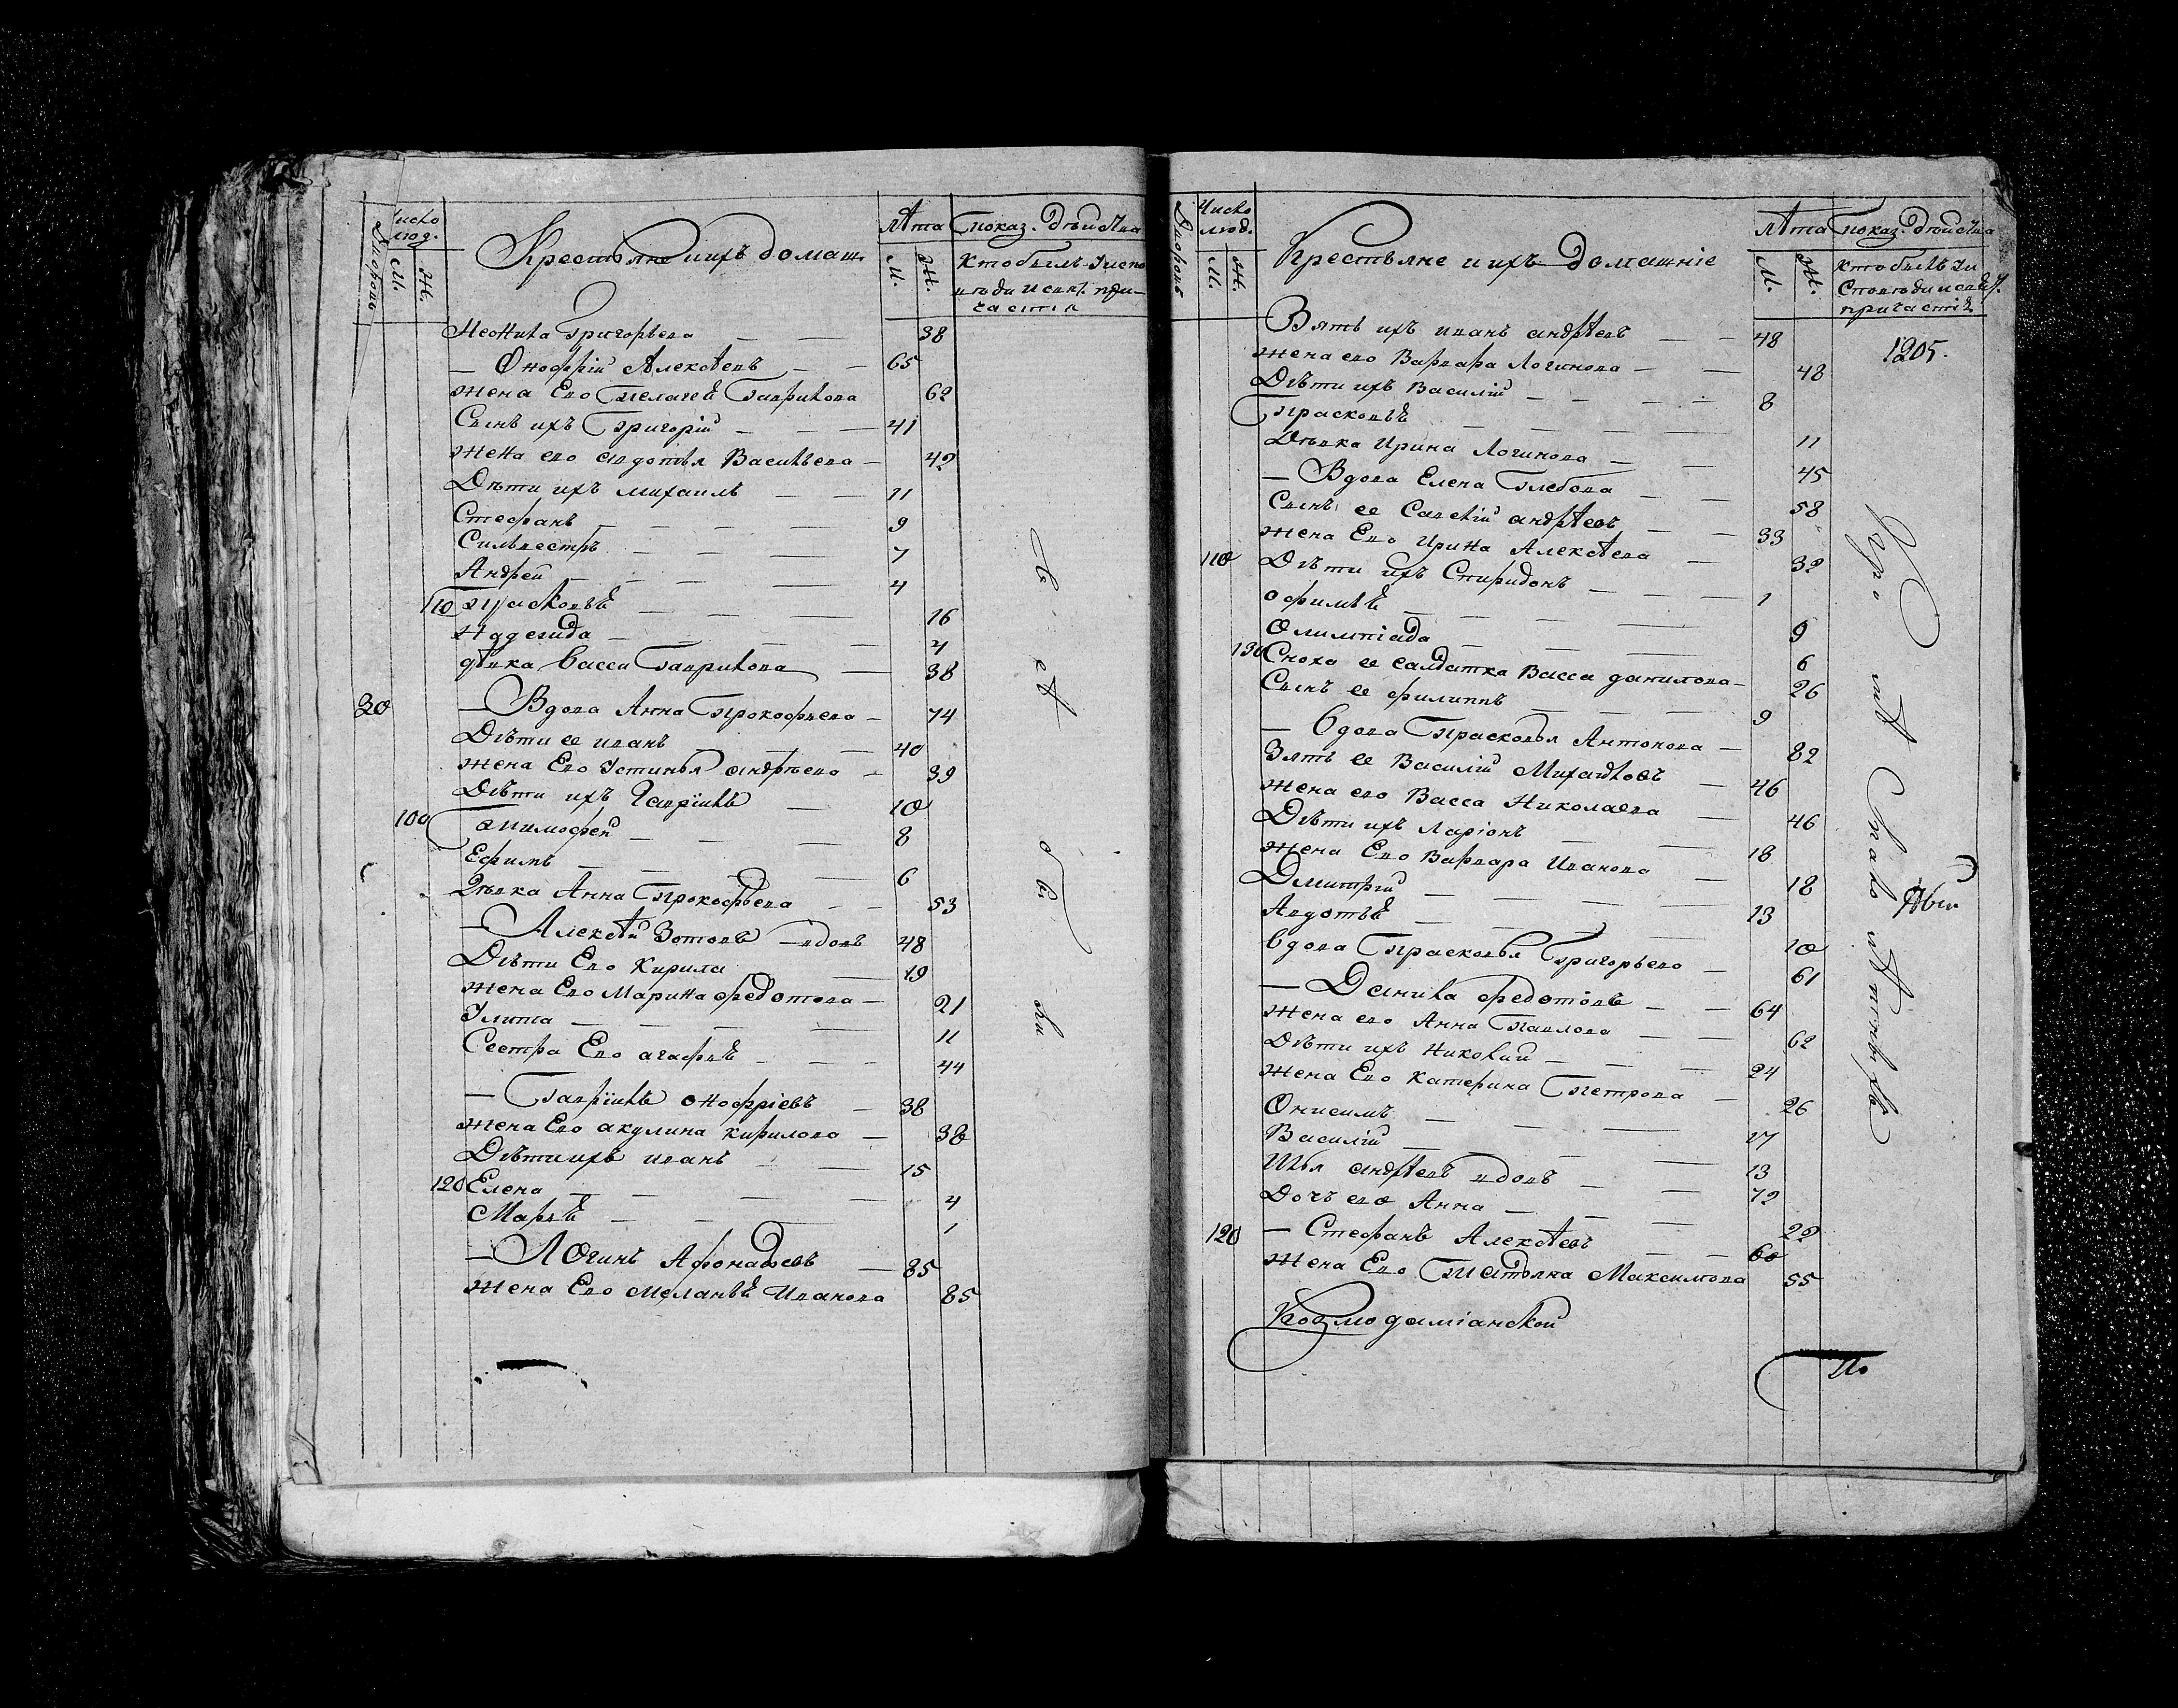 Дворовъ
Число люд.
М.
Ж.
Крестьяне и ихъ домаш.
Лѣта
М.
Ж.
Показ. Дѣйства
Кто былъ у испо
вѣди и свят. при-
частія
Неонила Григорьева 38
Онофрій Алексѣевъ 65
жена Его Пелагеѣ Гаврилова 62
Сынъ ихъ Григорій 41
жена его Авдотья Васильева 42
Дѣти ихъ михаилъ 11
Стефанъ 9
Сильвестръ 7
Андрей 4
110 Прасковьѣ 16
Надежда 4
дѣвка Васса Гаврилова 38
30 Вдова Анна Прокофьева 74
Дѣти ее иванъ 40
жена Его Устинья андрѣева 39
Дѣти ихъ Гаврiилъ 10
100 Тимофей 8
Ефимъ 6
Дѣвка Анна Прокофьева 53
Алексѣй Зотовъ вдовъ 48
Дѣти Его Кирила 19
жена Его Марина федотова 21
Улита 11
Сестра Его агафьѣ 44
Гаврiилъ Онофріевъ 38
жена Его акулина Кирилова 38
Дѣти ихъ иванъ 15
120 Елена 4
Марьѣ 1
Логинъ Афонасьевъ 85
жена Его Меланьѣ Иванова 85
Дворовъ
Число люд.
М.
Ж.
Крестьяне и ихъ домашніе
Лѣта
М.
Ж.
Показ. Дѣйства
Кто былъ у и
сповѣди и свят.
причастія
1205.
Зять ихъ иванъ андрѣевъ 48
жена его Варвара Логинова 48
Дѣти ихъ Василій 8
Прасковьѣ 11
Дѣвка Ирина Логинова 45
Вдова Елена Глебова 58
Сынъ ее Савелій андрѣевъ 33
жена Его Ирина Алексѣева 32
110 Дѣти ихъ Спиридонъ 1
офимьѣ 9
Олимпіада 6
130 Сноха ее салдатка Васса данилова 26
Сынъ ее филиппъ 9
Вдова Прасковья Антонова 82
Зять ее Василій Михайловъ 46
жена его Васса Николаева 46
Дѣти ихъ Ларіонъ 18
жена Его Варвара Иванова 18
Дмитрій 13
Авдотьѣ 10
Вдова Прасковья Григорьева 61
Данила федотовъ 64
жена его Анна Павлова 62
Дѣти ихъ Николай 24
жена Его Катерина Петрова 26
Онисимъ 17
Василій 13
Илья андрѣевъ вдовъ 72
Дочь его Анна 22
120 Стефанъ Алексѣевъ 60
жена Его Татьяна Максимова 55
Козмодаміанской